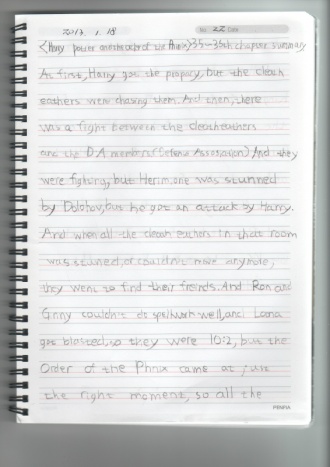 2017. 1. 18
No. 22 Date
<Harry potter and the order of the Phnix>35~36th chapter summary
At first, Harry got the propacy, but the death
eathers were chasing them. And then, there
was a fight between the deatheathers
and the D.A members(Defense Assotiation) And they
were fighting, but Hermione was stunned
by Dolohov, but he got an attack by Harry.
And when all the death eathers in that room
was stuned, or couldn't move anymore,
they went to find their freinds. And Ron and
Ginny couldn't do spellwork well, and Loona
got blasted, so they were 10:2, but the
Order of the Phnix came at just
the right moment, so all the